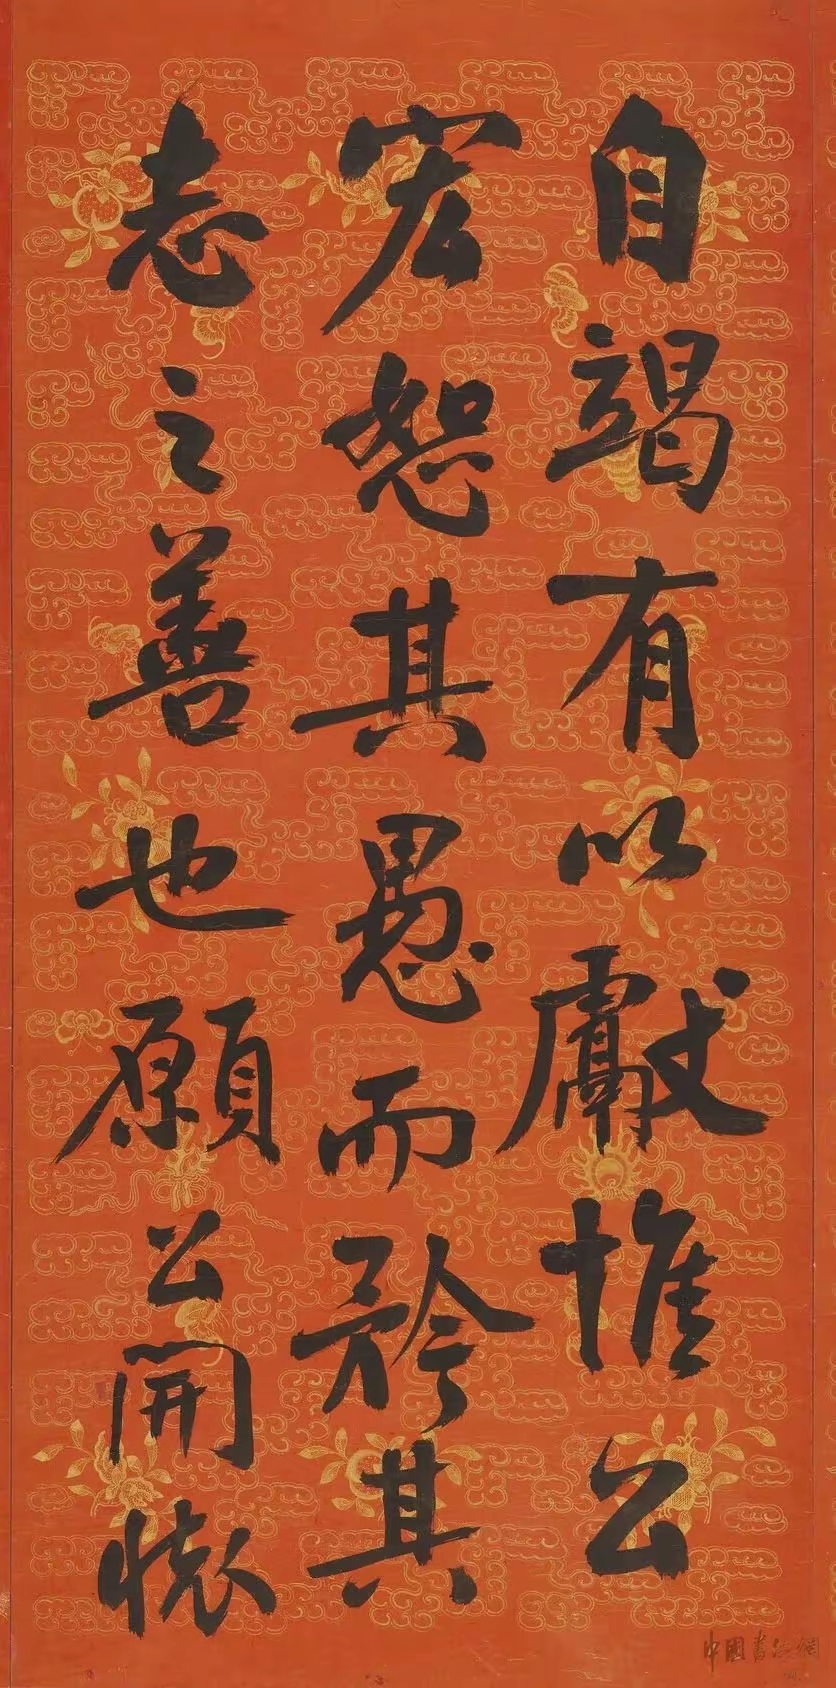 自竭有以獻惟公
宏恕其愚而矜其
志之善也願公開懷
中國書法網